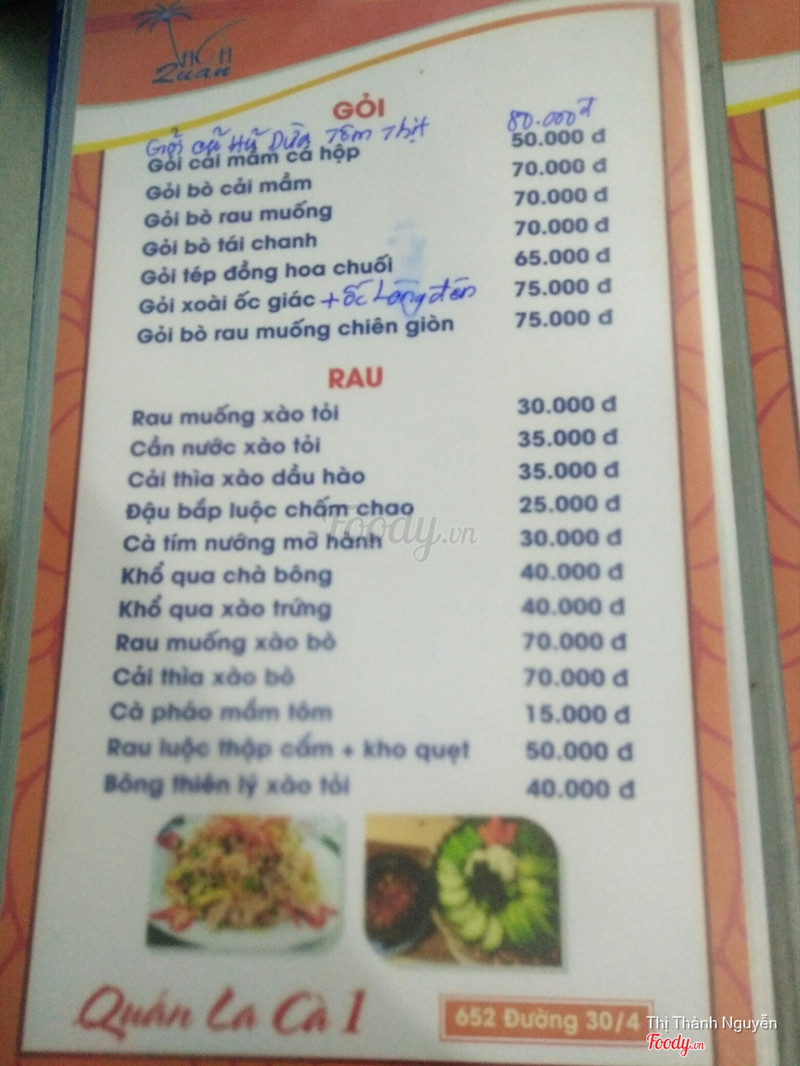 Quán
GỎI
Gỏi Cũ Hũ Dừa Tôm Thịt 80.000đ
Gỏi cải mầm cá hộp 50.000 đ
Gỏi bò cải mầm 70.000 đ
Gỏi bò rau muống 70.000 đ
Gỏi bò tái chanh 70.000 đ
Gỏi tép đồng hoa chuối 65.000 đ
Gỏi xoài ốc giác + ốc Lông đèn 75.000 đ
Gỏi bò rau muống chiên giòn 75.000 đ
RAU
Rau muống xào tỏi 30.000 đ
Cần nước xào tỏi 35.000 đ
Cải thìa xào dầu hào 35.000 đ
Đậu bắp luộc chấm chao 25.000 đ
Cà tím nướng mỡ hành 30.000 đ
Khổ qua chà bông 40.000 đ
Khổ qua xào trứng 40.000 đ
Rau muống xào bò 70.000 đ
Cải thìa xào bò 70.000 đ
Cà pháo mắm tôm 15.000 đ
Rau luộc thập cẩm + kho quẹt 50.000 đ
Bông thiên lý xào tỏi 40.000 đ
Foody.vn
Quán La Cà 1
652 Đường 30/4
Thị Thành Nguyễn
Foody.vn